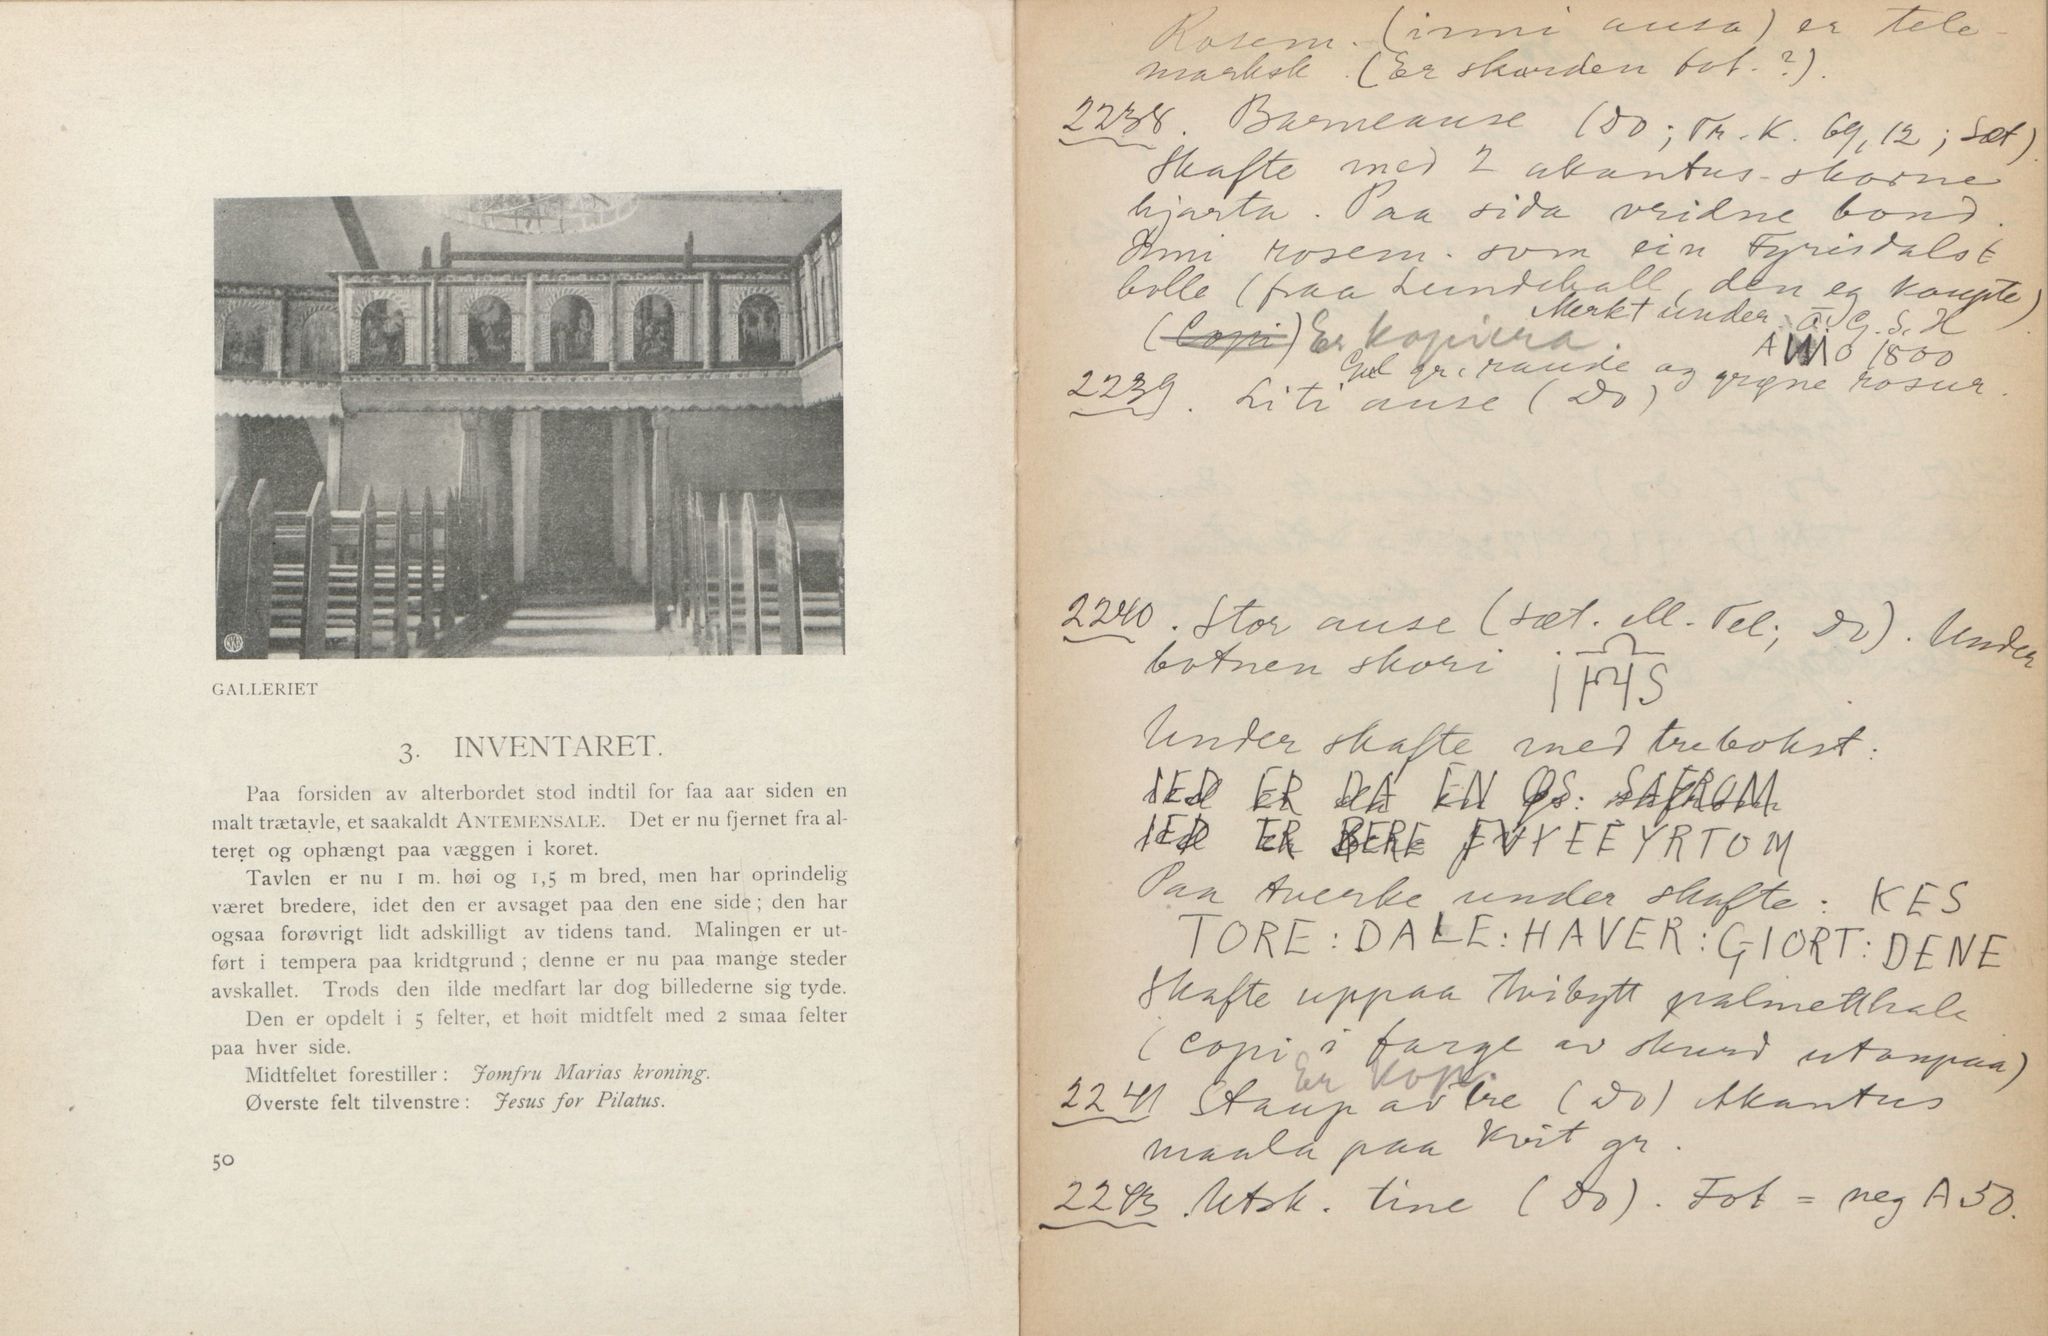 GALLERIET
3. INVENTARET.
Paa forsiden av alterbordet stod indtil for faa aar siden en
malt trætavle, et saakaldt ANTEMENSALE. Det er nu fjernet fra al-
teret og ophængt paa væggen i koret.
Tavlen er nu 1 m. høi og 1,5 m bred, men har oprindelig
været bredere, idet den er avsaget paa den ene side; den har
ogsaa forøvrigt lidt adskilligt av tidens tand. Malingen er ut-
ført i tempera paa kridtgrund; denne er nu paa mange steder
avskallet. Trods den ilde medfart lar dog billederne sig tyde.
Den er opdelt i 5 felter, et høit midtfelt med 2 smaa felter
paa hver side.
Midtfeltet forestiller: Jomfru Marias kroning.
Øverste felt tilvenstre: Jesus for Pilatus.
50
Rosem. (inni ausa) er tele-
marksk. (Er skurden fot.?).
2238. Barneause (Do; Tr. K. 69, 12; Sæt)
Skafte med 2 akantus-skorne
hjarta. Paa sida vridne bond.
Inni rosem. som ein Fyrisdalsk
bolle (fraa Lundehall, den eg kaupte)
Merkt under G. S. H
(Copi) Er kopiera. 1800
Gul gr., raude og grøne rosur.
2239. Liti ause (Do)
2240. Stor ause (Sæt. ell. Tel; Do). Under
botnen skori IHS
Under skafte med trebokst:
IED ER DA EN OS: SAFROM
IED ER BERE FVYEEYRTOM
Paa tverke under skafte: KES
TORE: DALE: HAVER: GIORT: DENE
Skafte uppaa tvibytt palmetthale
(copi i farge av skurd utanpaa)
Er kop.
2241 Staup av tre (Do) Akantus
maala paa kvit gr.
2243. Utsk. tine (Do). Fot = neg A 50.